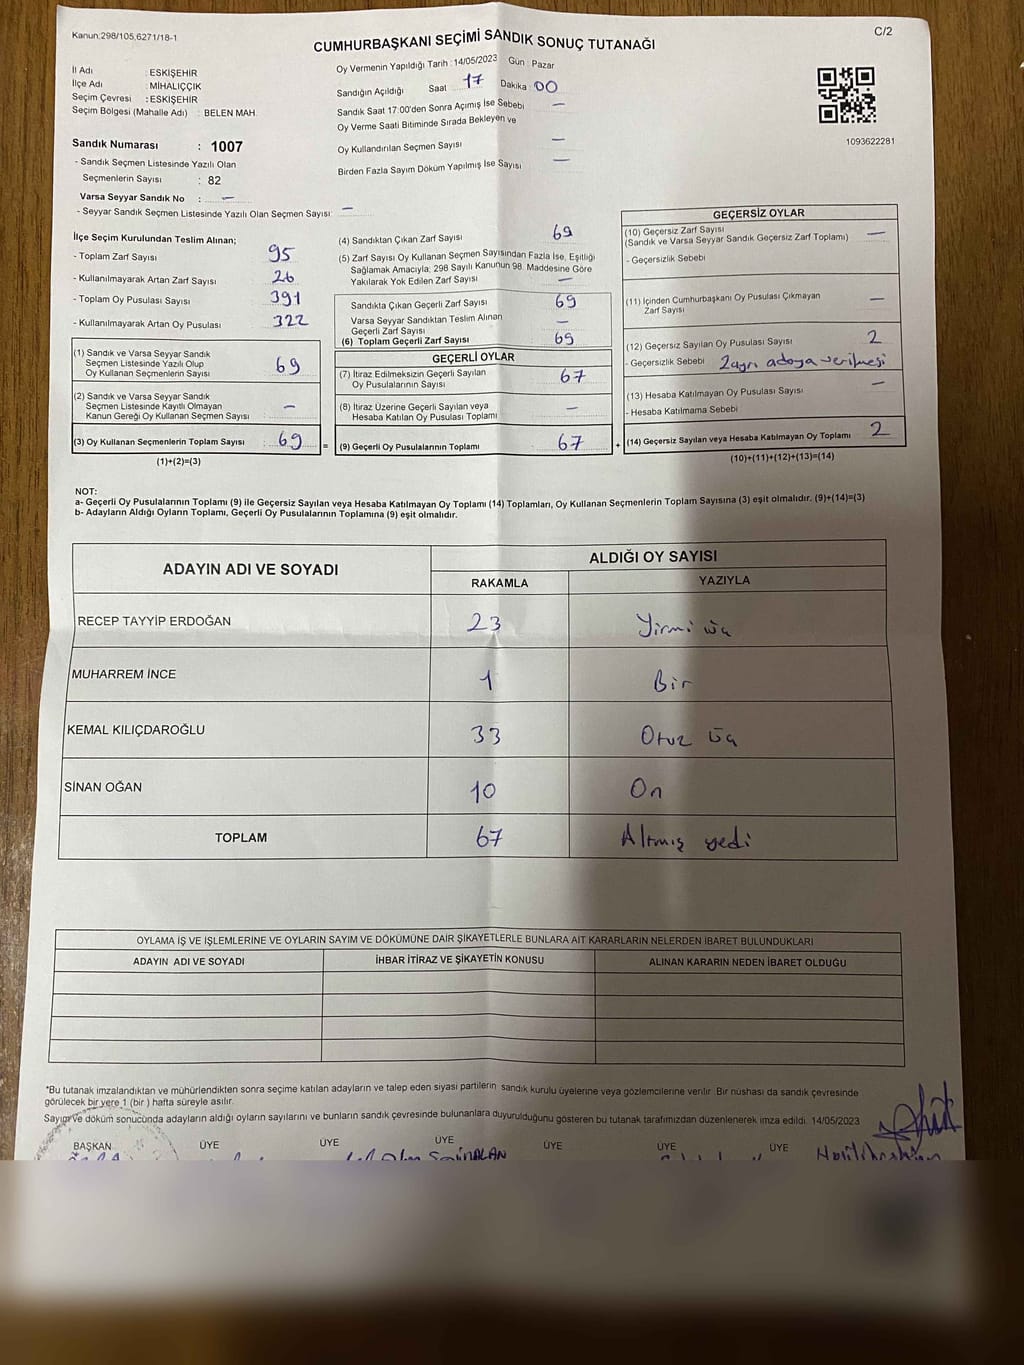 Kanun:298/105,6271/18-1
C/2
CUMHURBAŞKANI SEÇİMİ SANDIK SONUÇ TUTANAĞI
İl Adı : ESKİŞEHİR
İlçe Adı : MİHALIÇÇIK
Seçim Çevresi : ESKİŞEHİR
Seçim Bölgesi (Mahalle Adı) : BELEN MAH.
Sandık Numarası : 1007
- Sandık Seçmen Listesinde Yazılı Olan
Seçmenlerin Sayısı : 82
Varsa Seyyar Sandık No : —
- Seyyar Sandık Seçmen Listesinde Yazılı Olan Seçmen Sayısı: —
Oy Vermenin Yapıldığı Tarih : 14/05/2023 Gün : Pazar
Sandığın Açıldığı Saat 17 Dakika : 00
Sandık Saat 17:00'den Sonra Açımış İse Sebebi —
Oy Verme Saati Bitiminde Sırada Bekleyen ve
Oy Kullandırılan Seçmen Sayısı —
Birden Fazla Sayım Döküm Yapılmış İse Sayısı —
1093622281
İlçe Seçim Kurulundan Teslim Alınan;
- Toplam Zarf Sayısı 95
- Kullanılmayarak Artan Zarf Sayısı 26
- Toplam Oy Pusulası Sayısı 391
- Kullanılmayarak Artan Oy Pusulası 322
(1) Sandık ve Varsa Seyyar Sandık
Seçmen Listesinde Yazılı Olup
Oy Kullanan Seçmenlerin Sayısı : 69
(2) Sandık ve Varsa Seyyar Sandık
Seçmen Listesinde Kayıtlı Olmayan
Kanun Gereği Oy Kullanan Seçmen Sayısı —
(3) Oy Kullanan Seçmenlerin Toplam Sayısı : 69 =
(1)+(2)=(3)
(4) Sandıktan Çıkan Zarf Sayısı 69
(5) Zarf Sayısı Oy Kullanan Seçmen Sayısından Fazla İse, Eşitliği
Sağlamak Amacıyla; 298 Sayılı Kanunun 98. Maddesine Göre
Yakılarak Yok Edilen Zarf Sayısı —
Sandıkta Çıkan Geçerli Zarf Sayısı 69
Varsa Seyyar Sandıktan Teslim Alınan
Geçerli Zarf Sayısı —
(6) Toplam Geçerli Zarf Sayısı 69
GEÇERLİ OYLAR
(7) İtiraz Edilmeksizin Geçerli Sayılan
Oy Pusulalarının Sayısı 67
(8) İtiraz Üzerine Geçerli Sayılan veya
Hesaba Katılan Oy Pusulası Toplamı —
(9) Geçerli Oy Pusulalarının Toplamı 67 +
GEÇERSİZ OYLAR
(10) Geçersiz Zarf Sayısı
(Sandık ve Varsa Seyyar Sandık Geçersiz Zarf Toplamı) —
- Geçersizlik Sebebi
(11) İçinden Cumhurbaşkanı Oy Pusulası Çıkmayan
Zarf Sayısı —
(12) Geçersiz Sayılan Oy Pusulası Sayısı 2
- Geçersizlik Sebebi 2 ayrı adaya verilmesi
(13) Hesaba Katılmayan Oy Pusulası Sayısı —
- Hesaba Katılmama Sebebi
(14) Geçersiz Sayılan veya Hesaba Katılmayan Oy Toplamı 2
(10)+(11)+(12)+(13)=(14)
NOT:
a- Geçerli Oy Pusulalarının Toplamı (9) ile Geçersiz Sayılan veya Hesaba Katılmayan Oy Toplamı (14) Toplamları, Oy Kullanan Seçmenlerin Toplam Sayısına (3) eşit olmalıdır. (9)+(14)=(3)
b- Adayların Aldığı Oyların Toplamı, Geçerli Oy Pusulalarının Toplamına (9) eşit olmalıdır.
ADAYIN ADI VE SOYADI
ALDIĞI OY SAYISI
RAKAMLA YAZIYLA
RECEP TAYYİP ERDOĞAN 23 Yirmi üç
MUHARREM İNCE 1 Bir
KEMAL KILIÇDAROĞLU 33 Otuz üç
SİNAN OĞAN 10 On
TOPLAM 67 Altmış yedi
OYLAMA İŞ VE İŞLEMLERİNE VE OYLARIN SAYIM VE DÖKÜMÜNE DAİR ŞİKAYETLERLE BUNLARA AİT KARARLARIN NELERDEN İBARET BULUNDUKLARI
ADAYIN ADI VE SOYADI İHBAR İTİRAZ VE ŞİKAYETİN KONUSU ALINAN KARARIN NEDEN İBARET OLDUĞU
*Bu tutanak imzalandıktan ve mühürlendikten sonra seçime katılan adayların ve talep eden siyasi partilerin sandık kurulu üyelerine veya gözlemcilerine verilir. Bir nüshası da sandık çevresinde
görülecek bir yere 1 (bir ) hafta süreyle asılır.
Sayım ve döküm sonucunda adayların aldığı oyların sayılarını ve bunların sandık çevresinde bulunanlara duyurulduğunu gösteren bu tutanak tarafımızdan düzenlenerek imza edildi. 14/05/2023
BAŞKAN ÜYE ÜYE ÜYE ÜYE ÜYE ÜYE